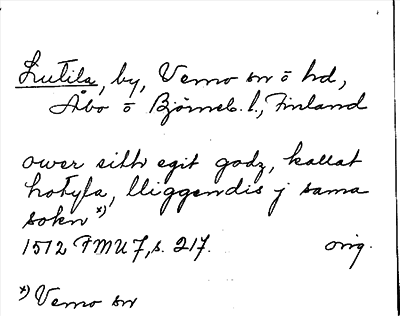 Lutila, by, Vemo sn o hd,
Åbo o Björneb. l., Finland
ower sith egit godz, kallat
hotyla, lliggendis j sama
sokn x)
1512 FMU 7, s. 217. orig.
x) Vemo sn